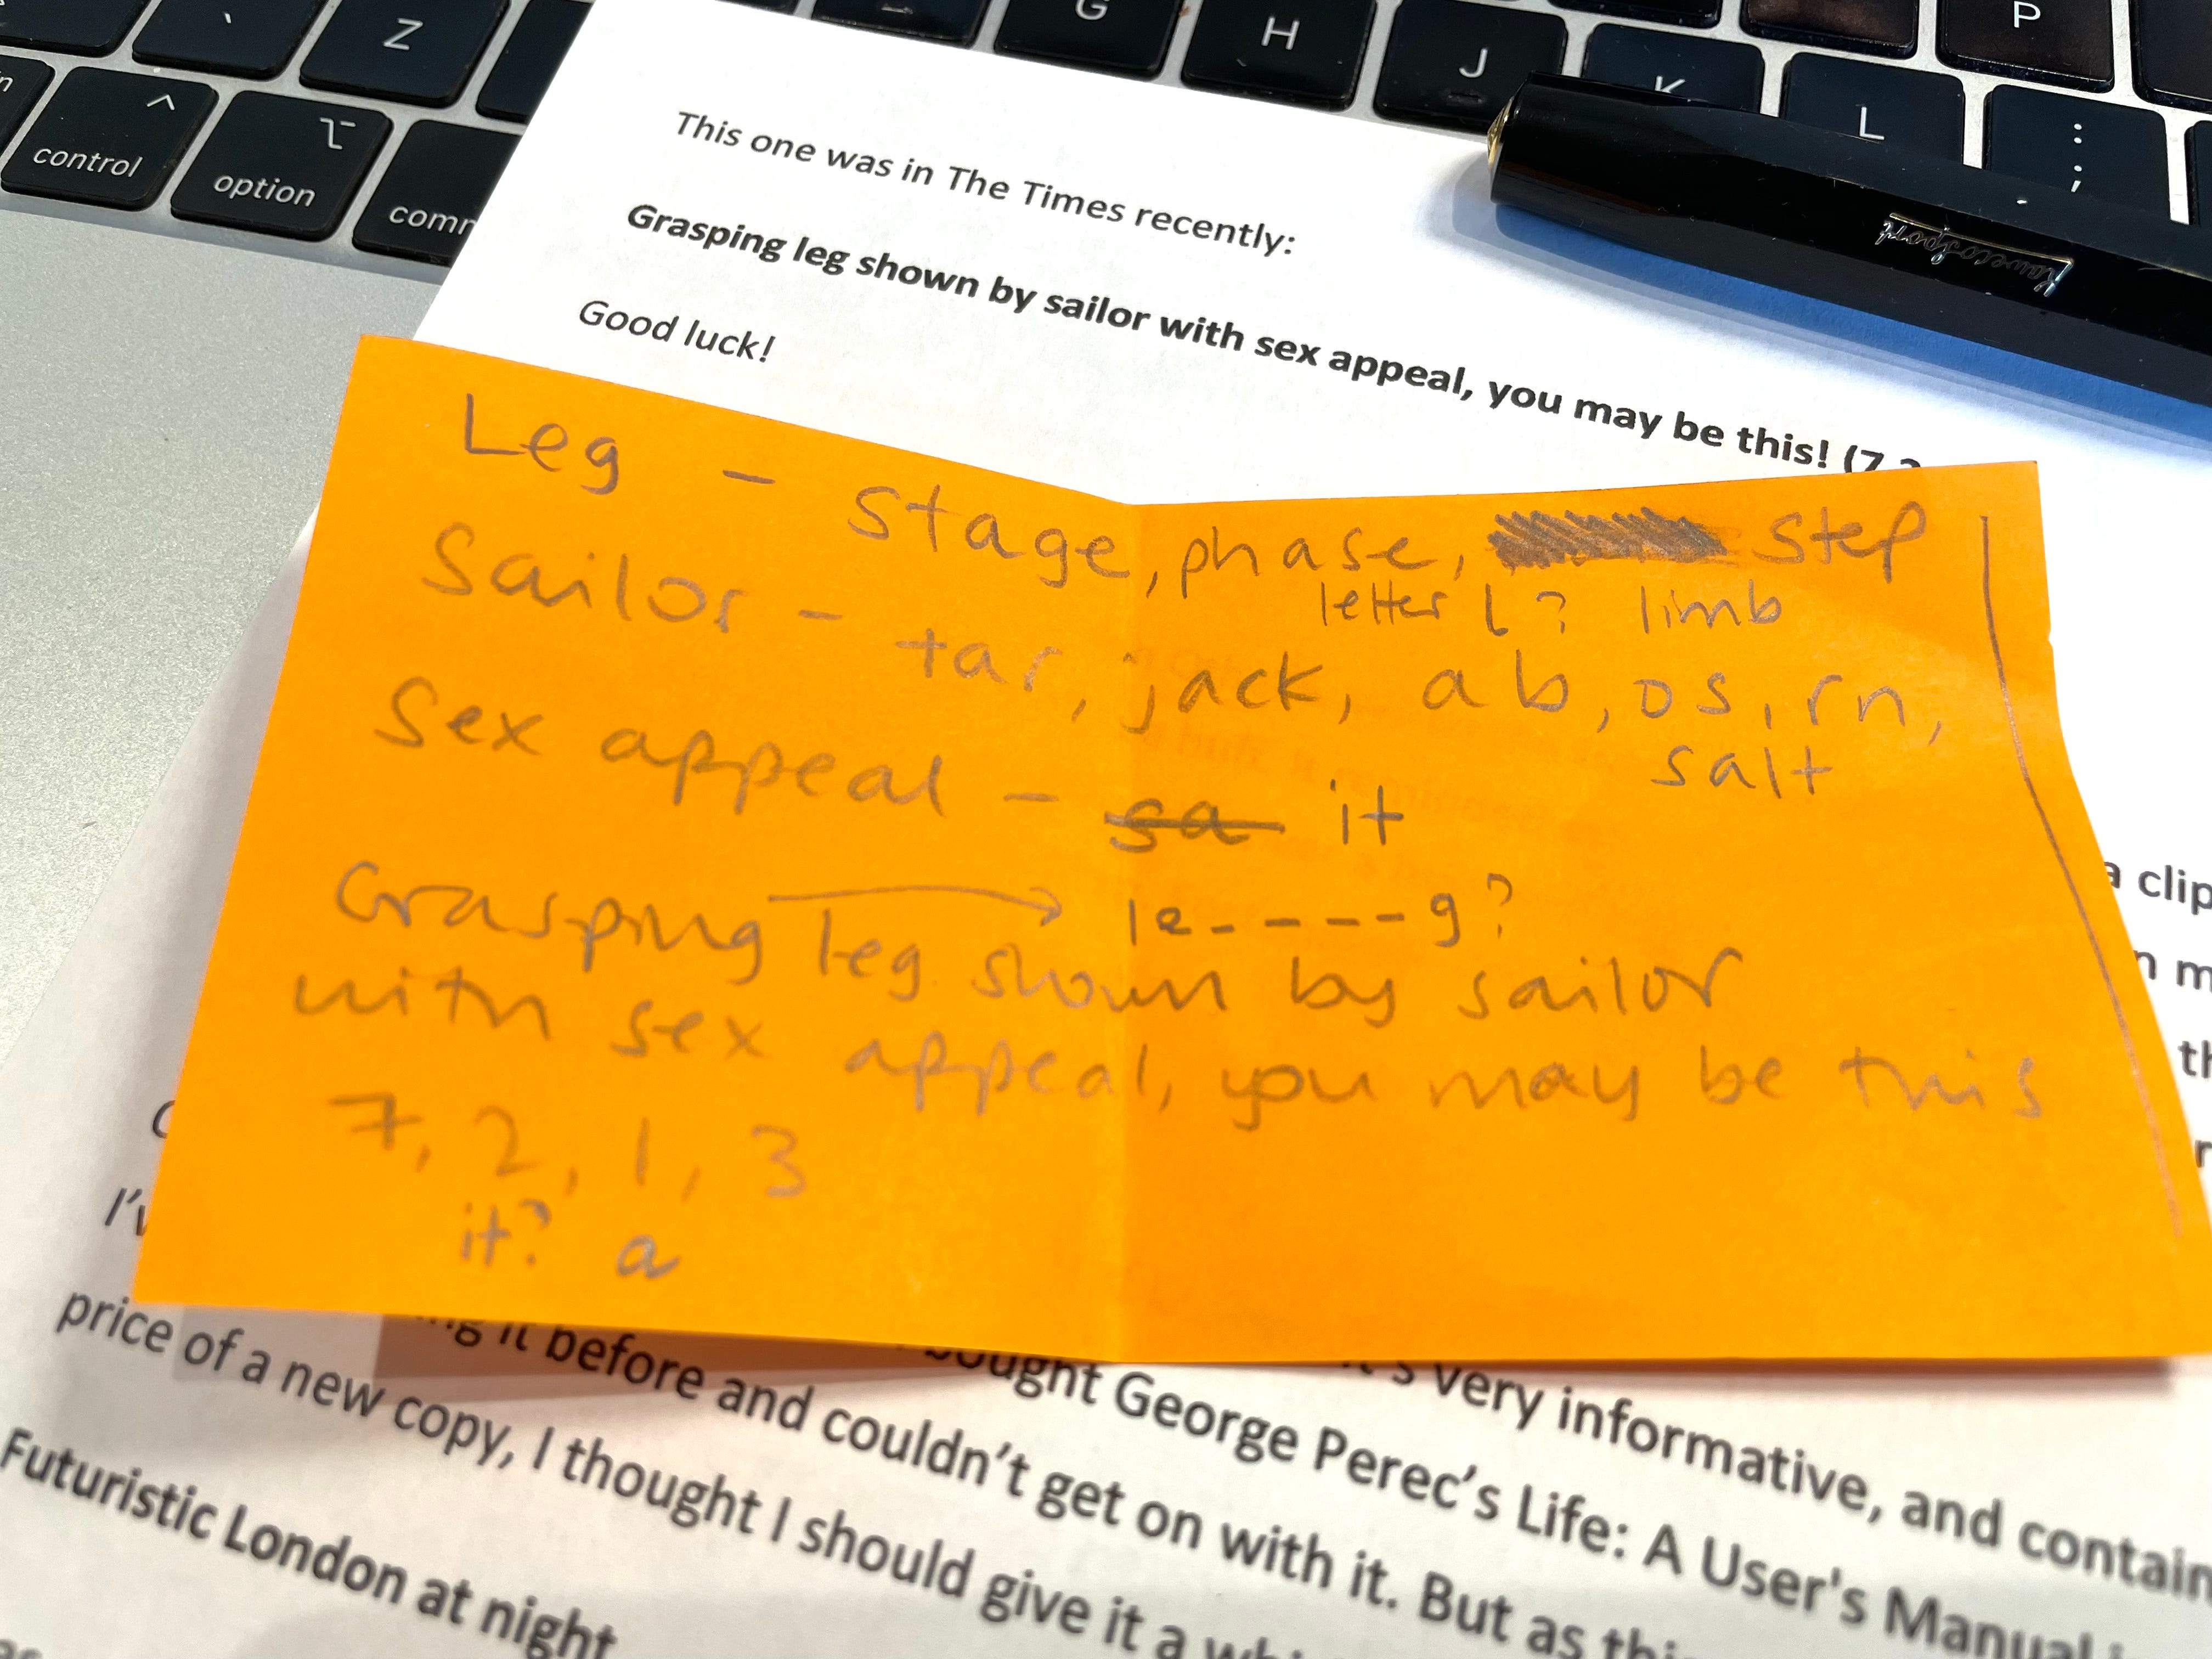 Z G H J K L P
control ^ option ⌥ : ;
This one was in The Times recently:
Grasping leg shown by sailor with sex appeal, you may be this! (7,2
Good luck!
KawecoSport
Leg - stage, phase, step
letter L? limb
Sailor - tar, jack, ab, os, rn,
salt
Sex appeal - sa it
Grasping leg shown by sailor
le----g?
with sex appeal, you may be this
7, 2, 1, 3
it? a
a clip
it before and bought George Perec's Life: A User's Manual
very informative, and contain
price of a new copy, I thought I should give it a
couldn't get on with it. But as
Futuristic London at night